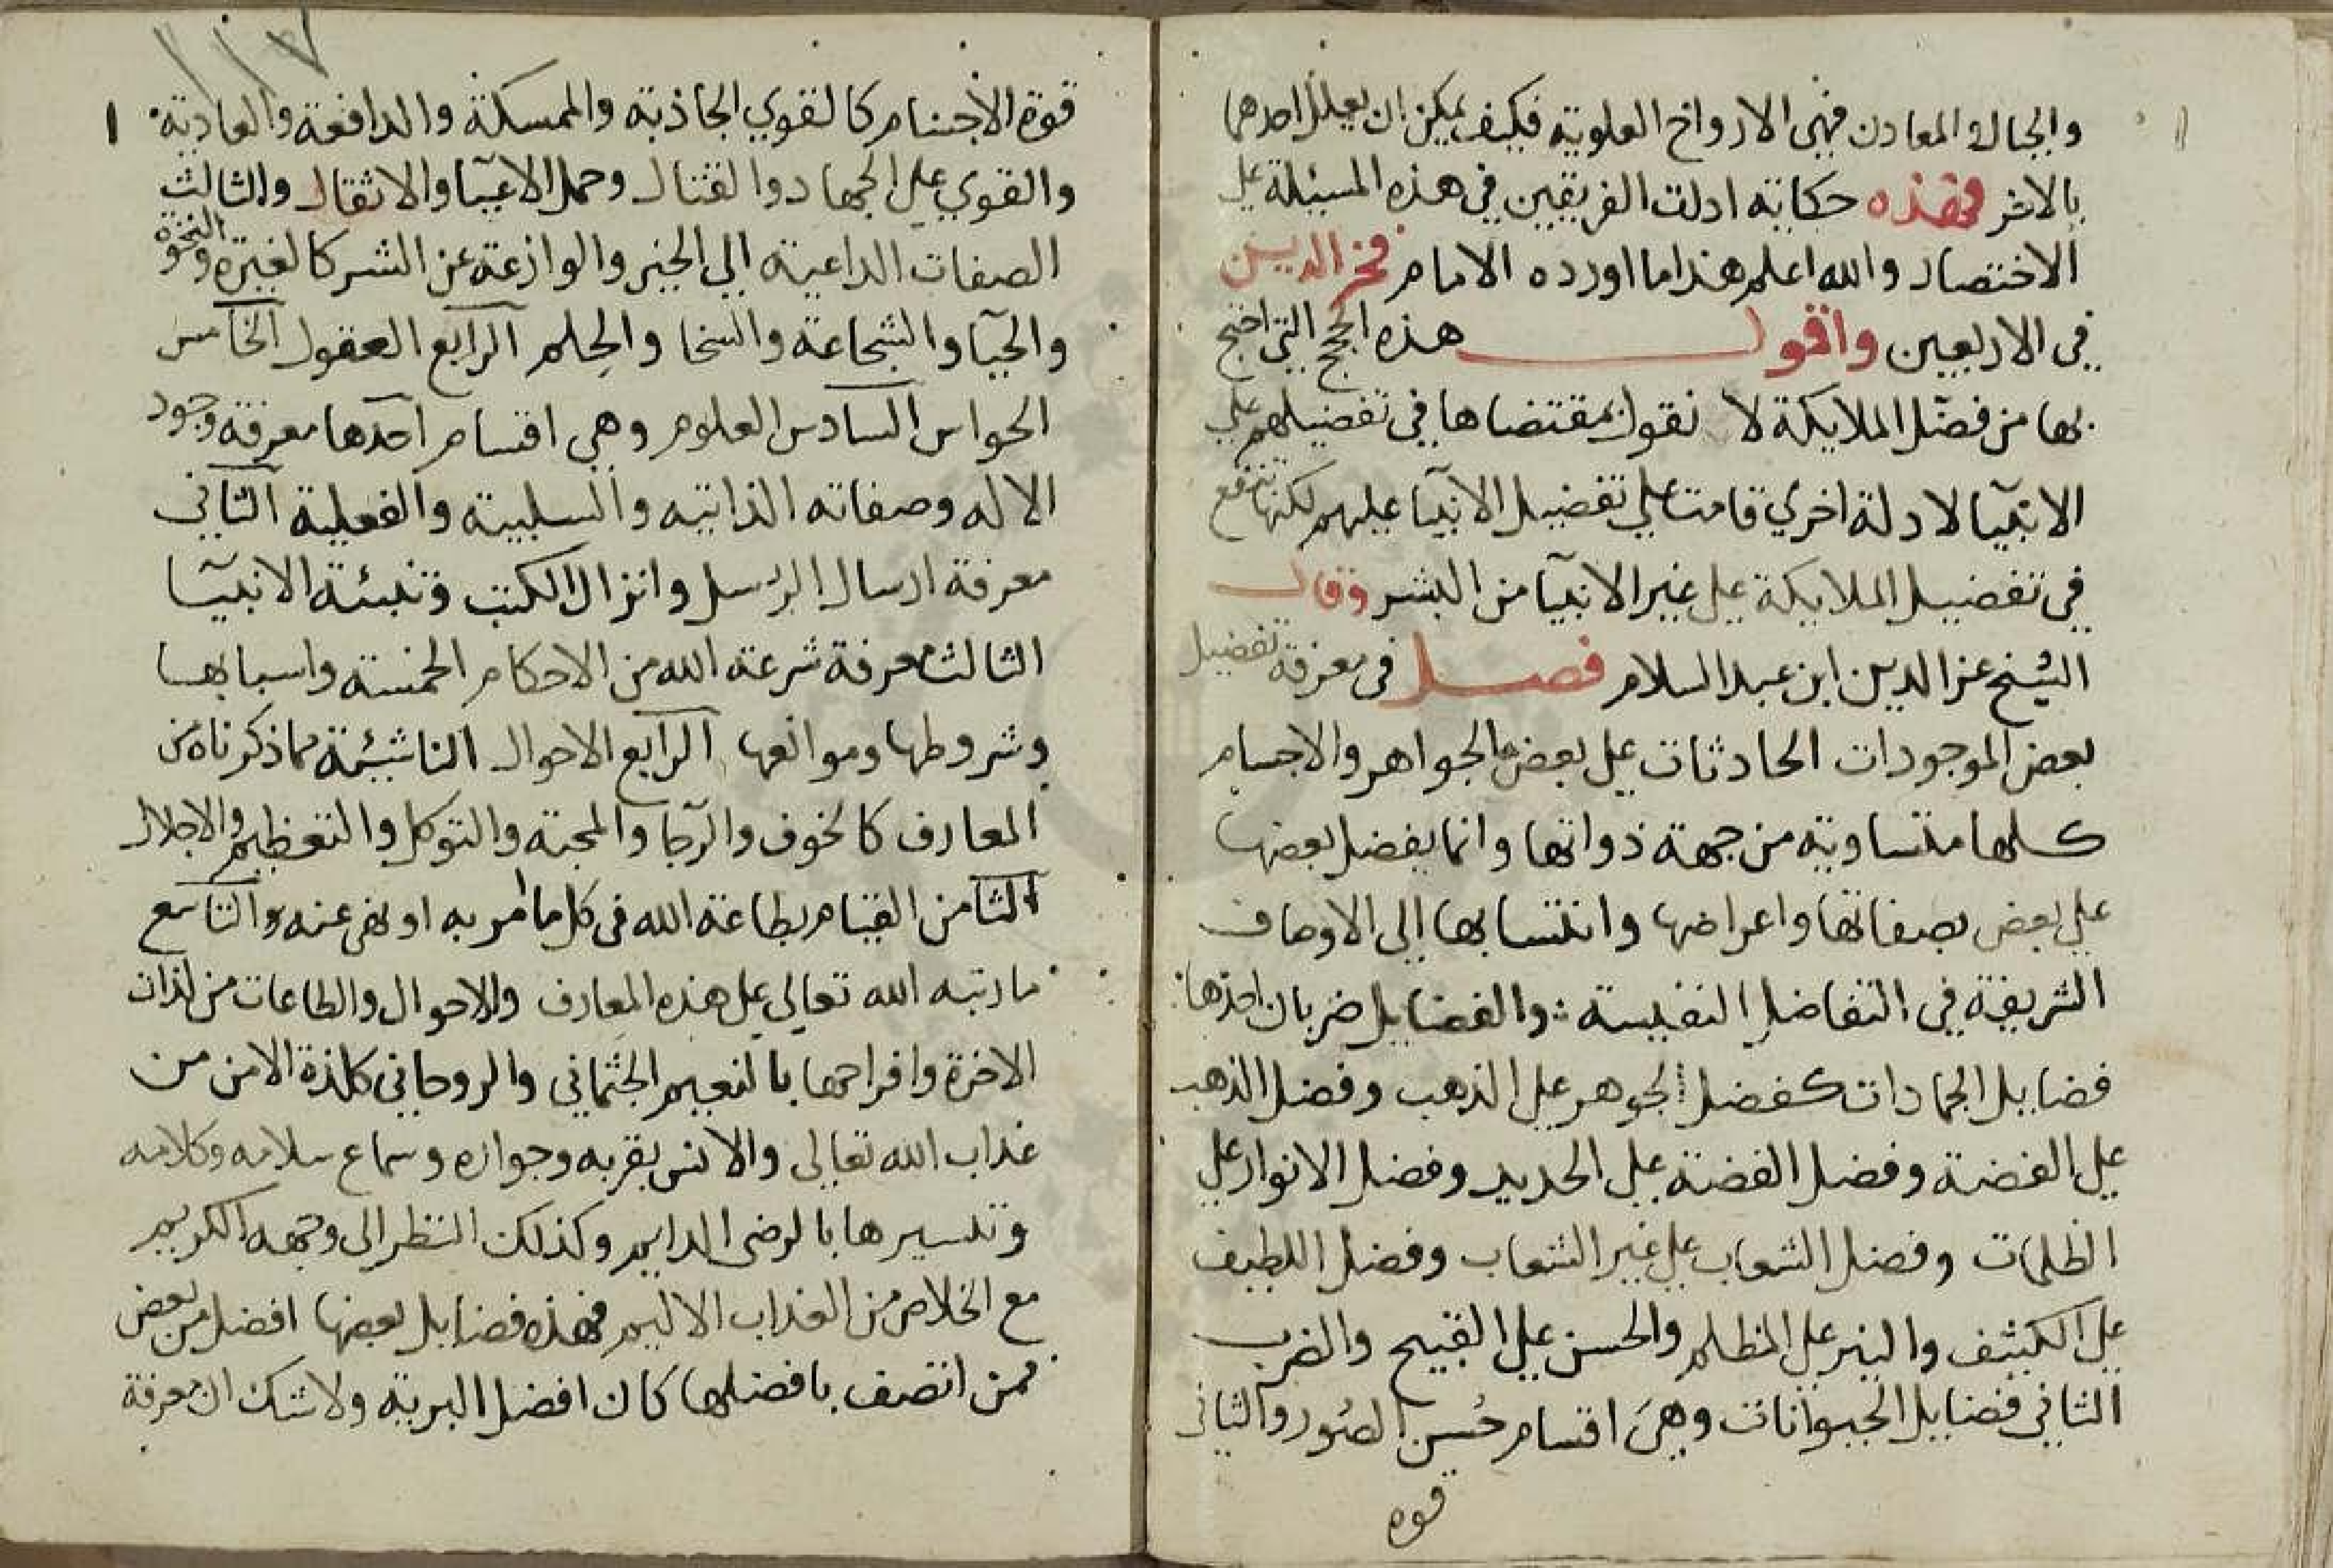 والجبال والمعادن فهي الارواح العلوية فكيف يمكن ان يعلل احدهما
بالاخر فهذه حكاية ادلت الفريقين في هذه المسئلة على
الاختصار والله اعلم هذا ما اورده الامام فخر الدين
في الاربعين واقول هذه الحجج التي احتج
بها من فضل الملايكة لا نقول بمقتضاها في تفضيلهم على
الانبيآ لادلة اخري قامت علي تفضيل الانبيآ عليهم لكنها تنفع
في تفضيل الملايكة على غير الانبيآ من البشر وقال
الشيخ عز الدين ابن عبد السلام فصل في معرفة تفضيل
بعض الموجودات الحادثات على بعض الجواهر والاجسام
كلها متساوية من جهة ذواتها وانما يفضل بعضها
على بعض بصفاتها واعراضها وانتسابها إلى الاوصاف
الشريفة في التفاضل النفيسة والفضايل ضربان احدها
فضايل الجمادات كفضل الجوهر على الذهب وفضل الذهب
على الفضة وفضل الفضة على الحديد وفضل الانوار على
الظلمات وفضل الشفاف على غير الشفاف وفضل اللطيف
على الكثيف والنير على المظلم والحسن علي القبيح والضرب
الثاني فضايل الحيوانات وهي اقسام حُسن الصُور والثاني
قوة
١١٧
قوة الاجسام كالقوي الجاذبة والممسكة والدافعة والغاذية
والقوي على الجهاد والقتال وحمل الاعبآ والاثقال والثالث
الصفات الداعية إلي الخير والوازعة عن الشر كالغيرة والنخوة
والحيآ والشجاعة والسخا والحِلم الرابع العقول الخامس
الحواس السادس العلوم وهي اقسام احدها معرفة وجود
الاله وصفاته الذاتيه والسلبية والفعلية الثاني
معرفة ارسال الرسل وانزال الكتب وتنبئة الانبيآ
الثالث معرفة شرعة الله من الاحكام الخمسة واسبابها
وشروطها وموانعها الرابع الاحوال الناشيئة مما ذكرناه من
المعارف كالخوف والرجا والمحبة والتوكل والتعظيم والاجلال
الثامن القيام بطاعة الله في كل ما امر به او نهى عنه والتاسع
ما رتبه الله تعالى على هذه المعارف والاحوال والطاعات من لذات
الاخرة وافراحها بالنعيم الجثماني والروحاني كلذة الامن من
عذاب الله تعالى والانس بقربه وجواره وسماع سلامه وكلامه
وتبسيرها بالرضى الدايم وكذلك النظر الى وجهه الكريم
مع الخلاص من العذاب الاليم فهذه فضايل بعضها افضل من بعض
فمن اتصف بافضلها كان افضل البرية ولا شك ان معرفة